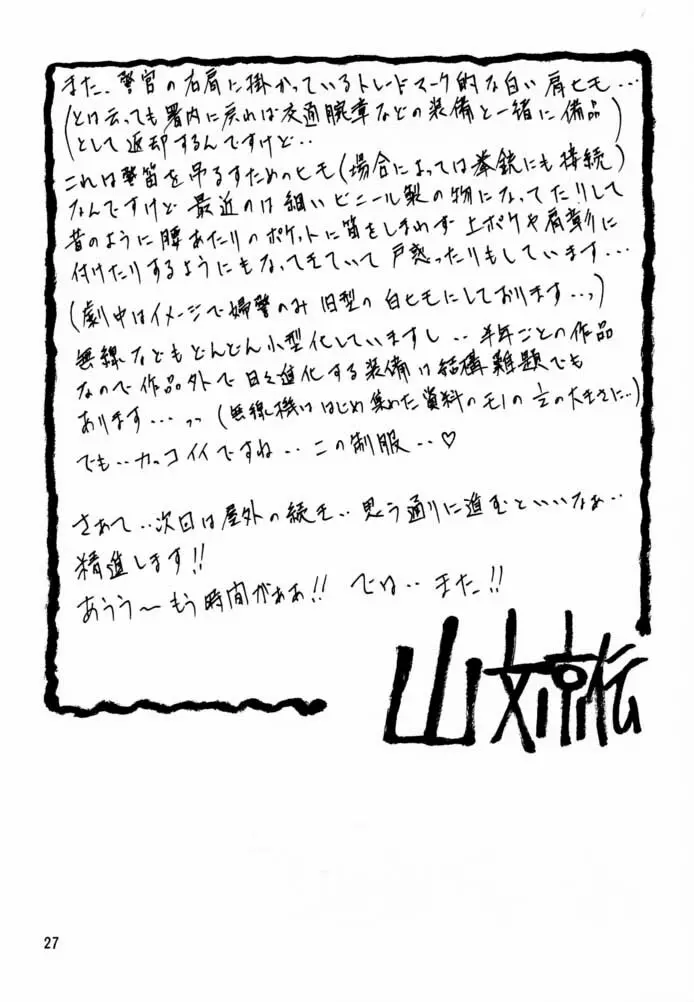 また、警官の右肩に掛かっているトレードマーク的な白い肩ヒモ…
(とは云っても署内に戻れば交通腕章などの装備と一緒に備品
として返却するんですけど…)
これは警笛を吊るすためのヒモ(場合によっては拳銃にも接続)
なんですけど最近のは細いビニール製の物になってたりして
昔のように腰あたりのポケットに笛をしまわず上ポケや肩章に
付けたりするようにもなってきていて戸惑ったりもしています…
(劇中はイメージで婦警のみ旧型の白ヒモにしております…っ)
無線などもどんどん小型化していますし‥半年ごとの作品
なので作品外で日々進化する装備は結構難題でも
あります…っっ(無線機ははじめ集めた資料のモノの1/2の大きさに…)
でも‥カッコイイですね‥この制服‥♡
さあて‥次回は屋外の続き‥思う通りに進むといいなぁ‥
精進します!!
あうう〜もう時間がああ!! では‥また!!
山文京伝
27